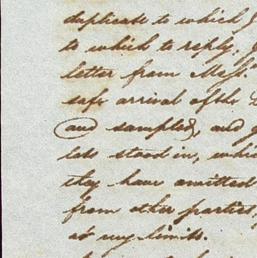 duplicate to which I
to which to reply.
letter from Mess.
safe arrival of the
and sampled, and
lots stood in, which
they have omitted
from other parties,
at my limits.